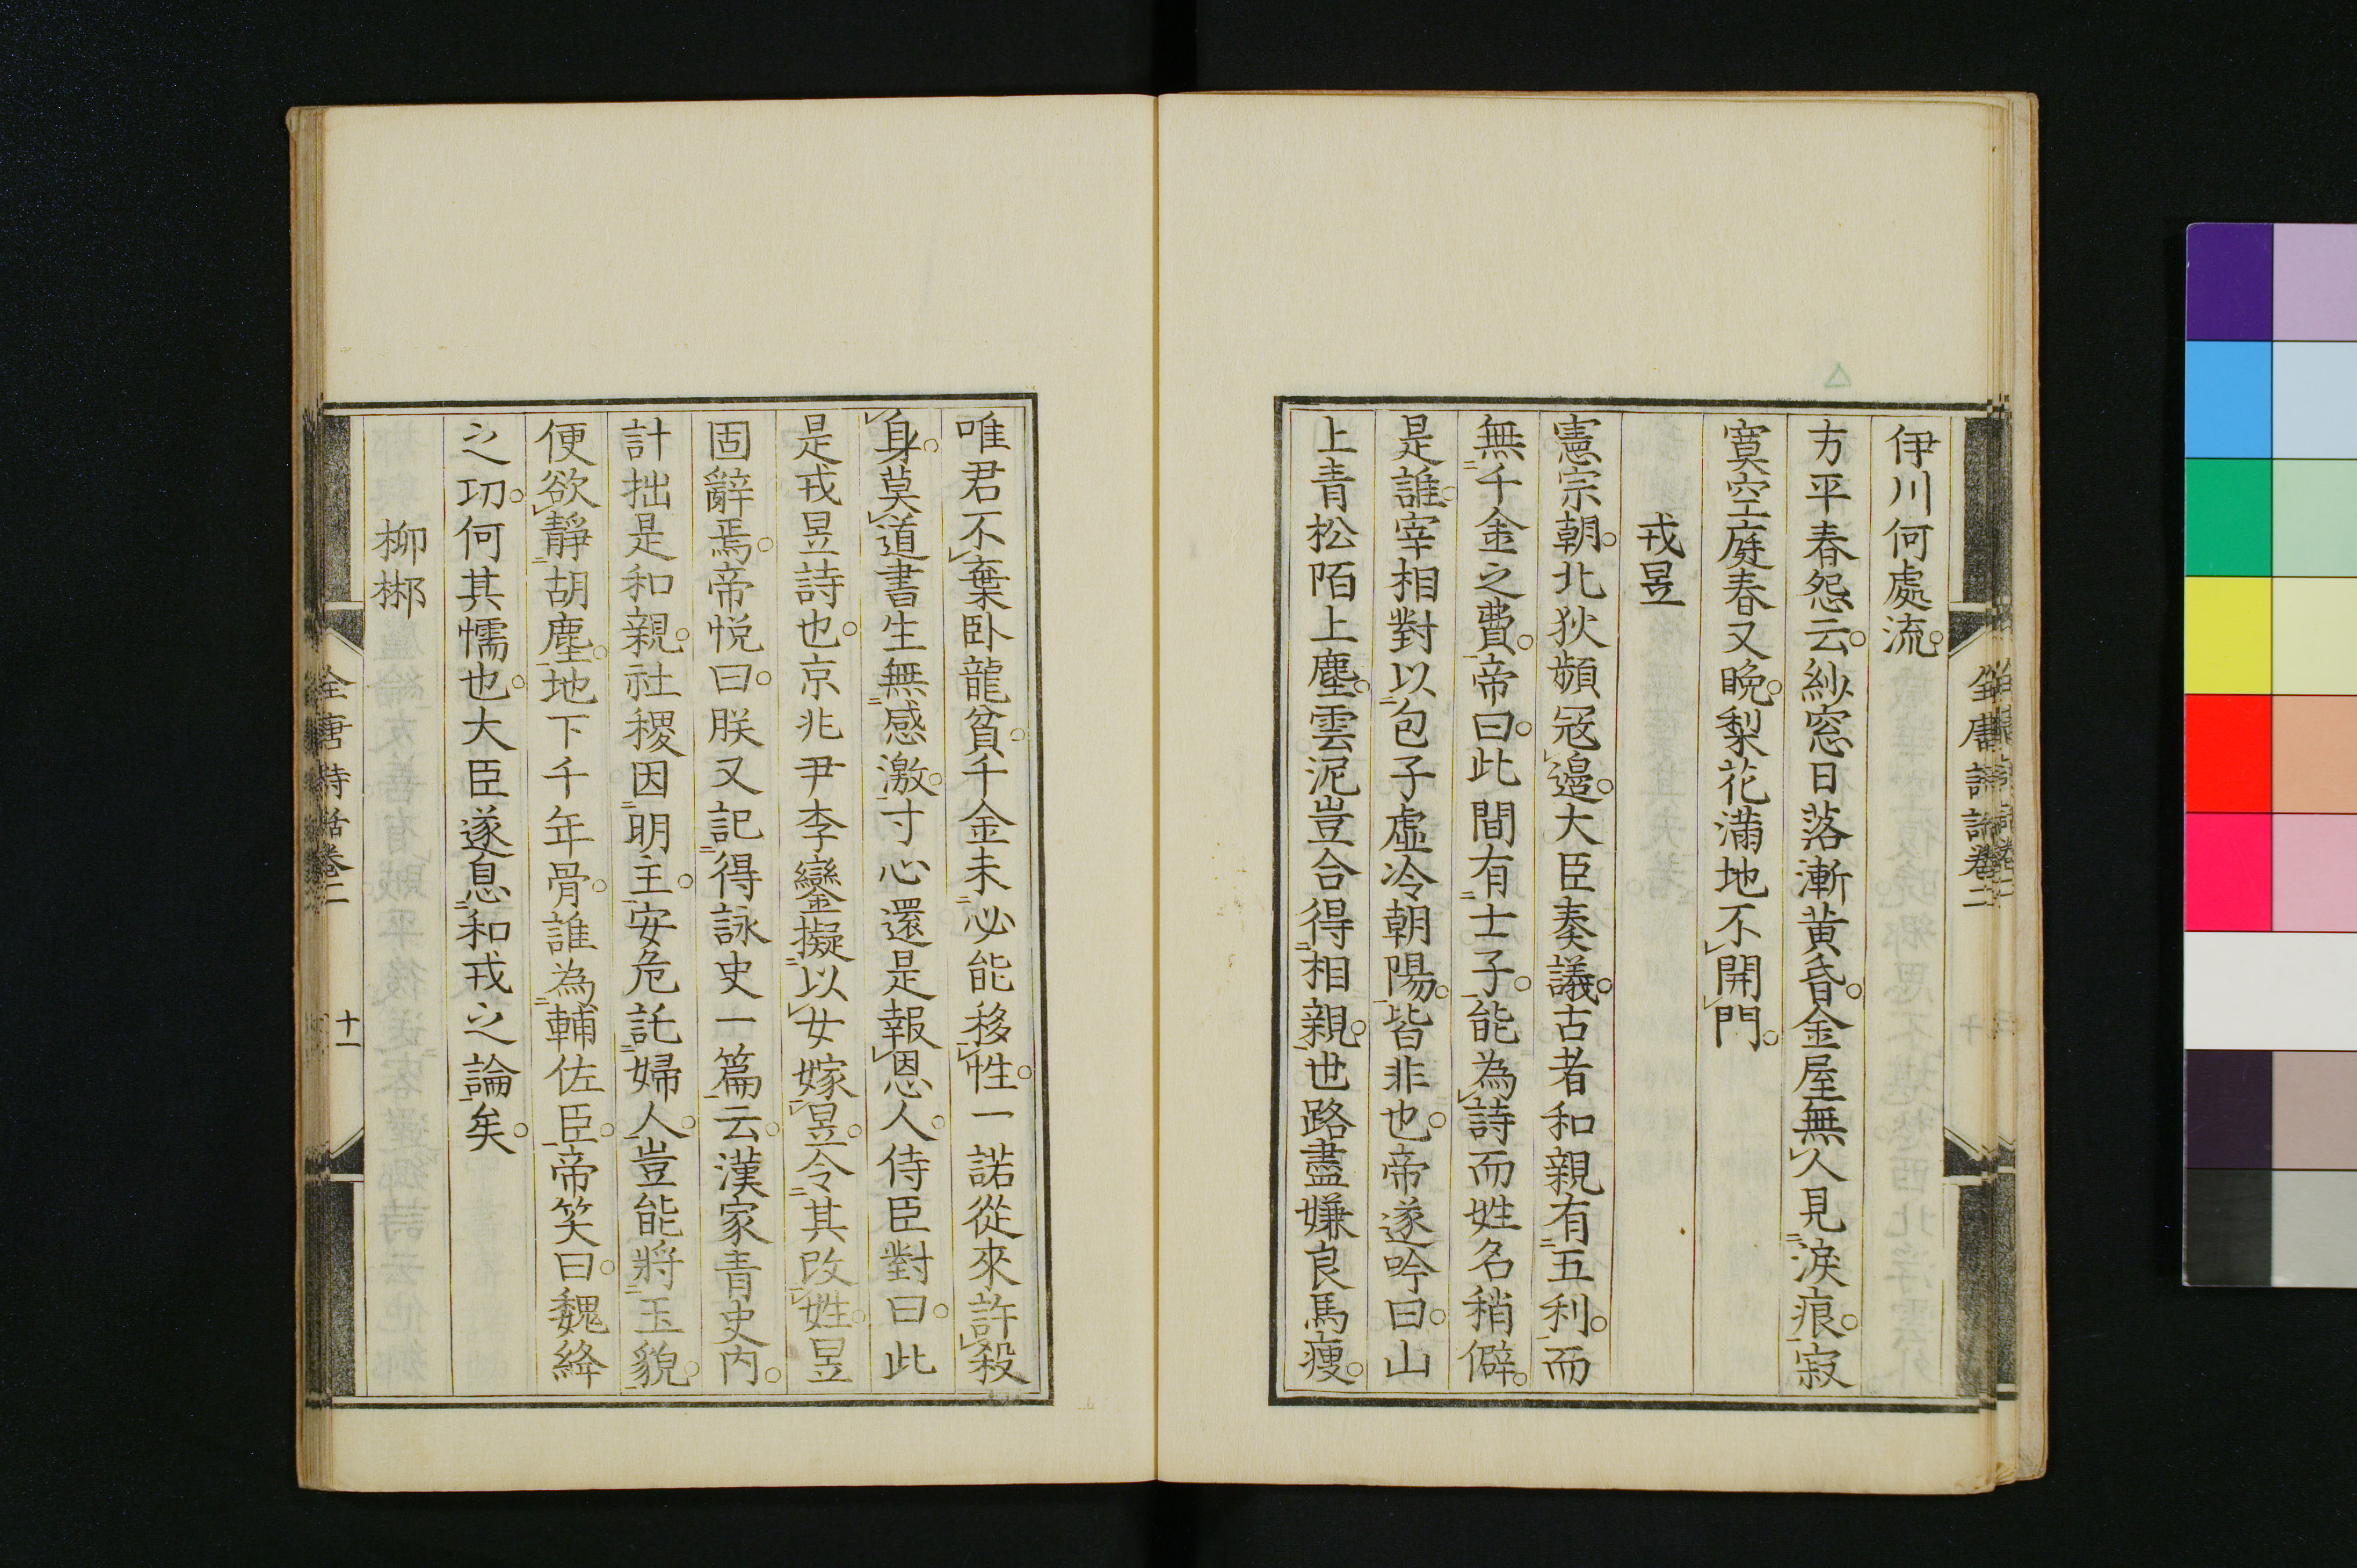 伊川何處流。
方平春怨云。紗窓日落漸黄昏。金屋無人見淚痕。寂
寞空庭春又晩。梨花滿地不開門。
戎昱
憲宗朝。北狄頻冦邉。大臣奏議。古者和親有五利。而
無千金之費。帝曰。此間有士子。能為詩而姓名稍僻。
是誰。宰相對以包子虛冷朝陽。皆非也。帝遂吟曰。山
上青松陌上塵。雲泥豈合得相親。世路盡嫌良馬瘦。
唯君不棄卧龍貧。千金未必能移性。一諾從來許殺
身。莫道書生無感激。寸心還是報恩人。侍臣對曰。此
是戎昱詩也。京兆尹李鑾擬以女嫁昱。令其改姓。昱
固辭焉。帝悦曰。朕又記得詠史一篇云。漢家青史内。
計拙是和親。社稷因明主。安危託婦人。豈能將玉貌。
便欲靜胡塵。地下千年骨。誰為輔佐臣。帝笑曰。魏絳
之功。何其懦也。大臣遂息和戎之論矣。
柳郴
全唐詩話卷二
十一